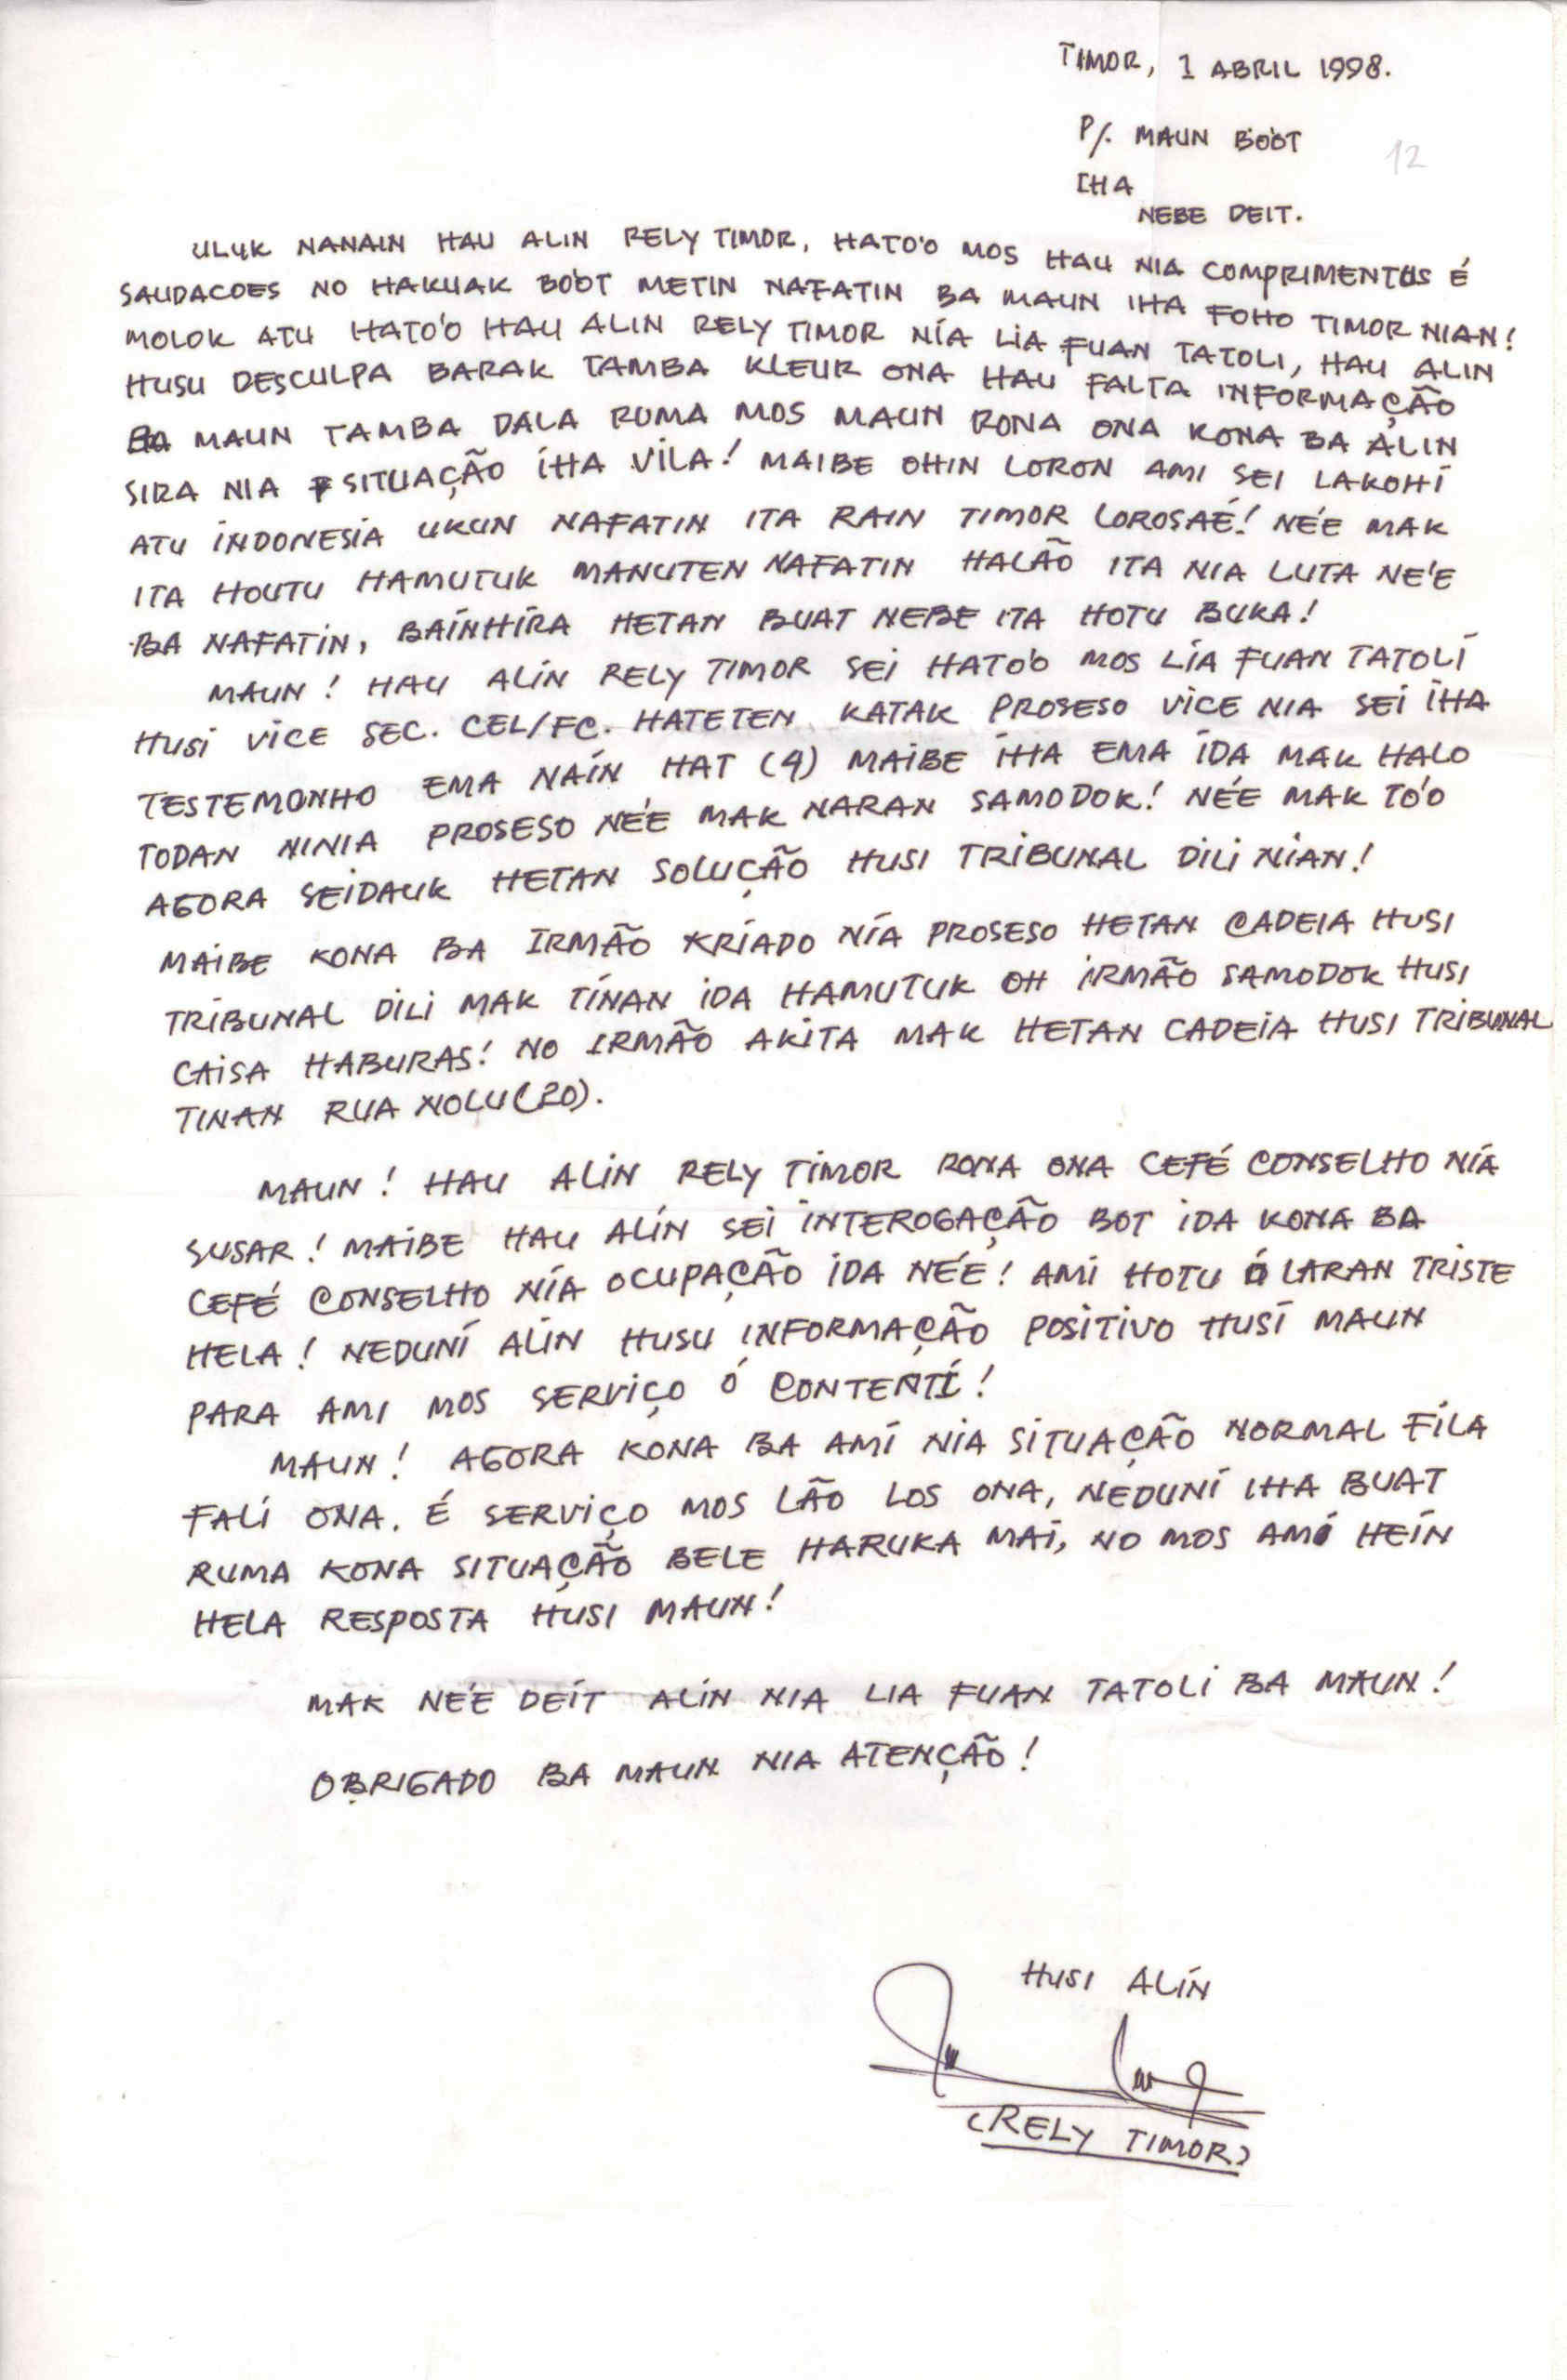 TIMOR, 1 ABRIL 1998.
P/. MAUN BOÓT
12
IHA
NEBE DEIT.
ULUK NANAIN HAU ALIN RELY TIMOR, HATO'O MOS HAU NIA COMPRIMENTUS É
SAUDACOES NO HAKUAK BOÓT METIN NAFATIN BA MAUN IHA FOHO TIMOR NIAN!
MOLOK ATU HATO'O HAU ALIN RELY TIMOR NÍA LIA FUAN TATOLI, HAU ALIN
HUSU DESCULPA BARAK TAMBA KLEUR ONA HAU FALTA INFORMAÇÃO
BA MAUN TAMBA DALA RUMA MOS MAUN RONA ONA KONA BA ALIN
SIRA NIA SITUAÇÃO IHA VILA! MAIBE OHIN LORON AMI SEI LAKOHI
ATU INDONESIA UKUN NAFATIN ITA RAIN TIMOR LOROSAÉ! NÉE MAK
ITA HOUTU HAMUTUK MANUTEN NAFATIN HALÃO ITA NIA LUTA NE'E
BA NAFATIN, BAINHIRA HETAN BUAT NEBE ITA HOTU BUKA!
MAUN! HAU ALIN RELY TIMOR SEI HATO'O MOS LIA FUAN TATOLI
HUSI VICE SEC. CEL/FC. HATETEN KATAK PROSESO VICE NIA SEI IHA
TESTEMONHO EMA NAÍN HAT (4) MAIBE IHA EMA IDA MAK HALO
TODAN NINIA PROSESO NÉE MAK NARAN SAMODOK! NÉE MAK TO'O
AGORA SEIDAUK HETAN SOLUÇÃO HUSI TRIBUNAL DILI NIAN!
MAIBE KONA BA IRMÃO KRIADO NÍA PROSESO HETAN CADEIA HUSI
TRIBUNAL DILI MAK TINAN IDA HAMUTUK OH IRMÃO SAMODOK HUSI
CAISA HABURAS! NO IRMÃO AKITA MAK HETAN CADEIA HUSI TRIBUNAL
TINAN RUA NOLU (20).
MAUN! HAU ALIN RELY TIMOR RONA ONA CEFÉ CONSELHO NÍA
SUSAR! MAIBE HAU ALIN SEI INTEROGAÇÃO BOT IDA KONA BA
CEFÉ CONSELHO NÍA OCUPAÇÃO IDA NÉE! AMI HOTU Ó LARAN TRISTE
HELA! NEDUNI ALIN HUSU INFORMAÇÃO POSITIVO HUSI MAUN
PARA AMI MOS SERVIÇO Ó CONTENTI!
MAUN! AGORA KONA BA AMI NIA SITUAÇÃO NORMAL FILA
FALI ONA. É SERVIÇO MOS LÃO LOS ONA, NEDUNI IHA BUAT
RUMA KONA SITUAÇÃO BELE HARUKA MAI, NO MOS AMI HEIN
HELA RESPOSTA HUSI MAUN!
MAK NÉE DEIT ALIN NIA LIA FUAN TATOLI BA MAUN!
OBRIGADO BA MAUN NIA ATENÇÃO!
HUSI ALÍN
(RELY TIMOR)